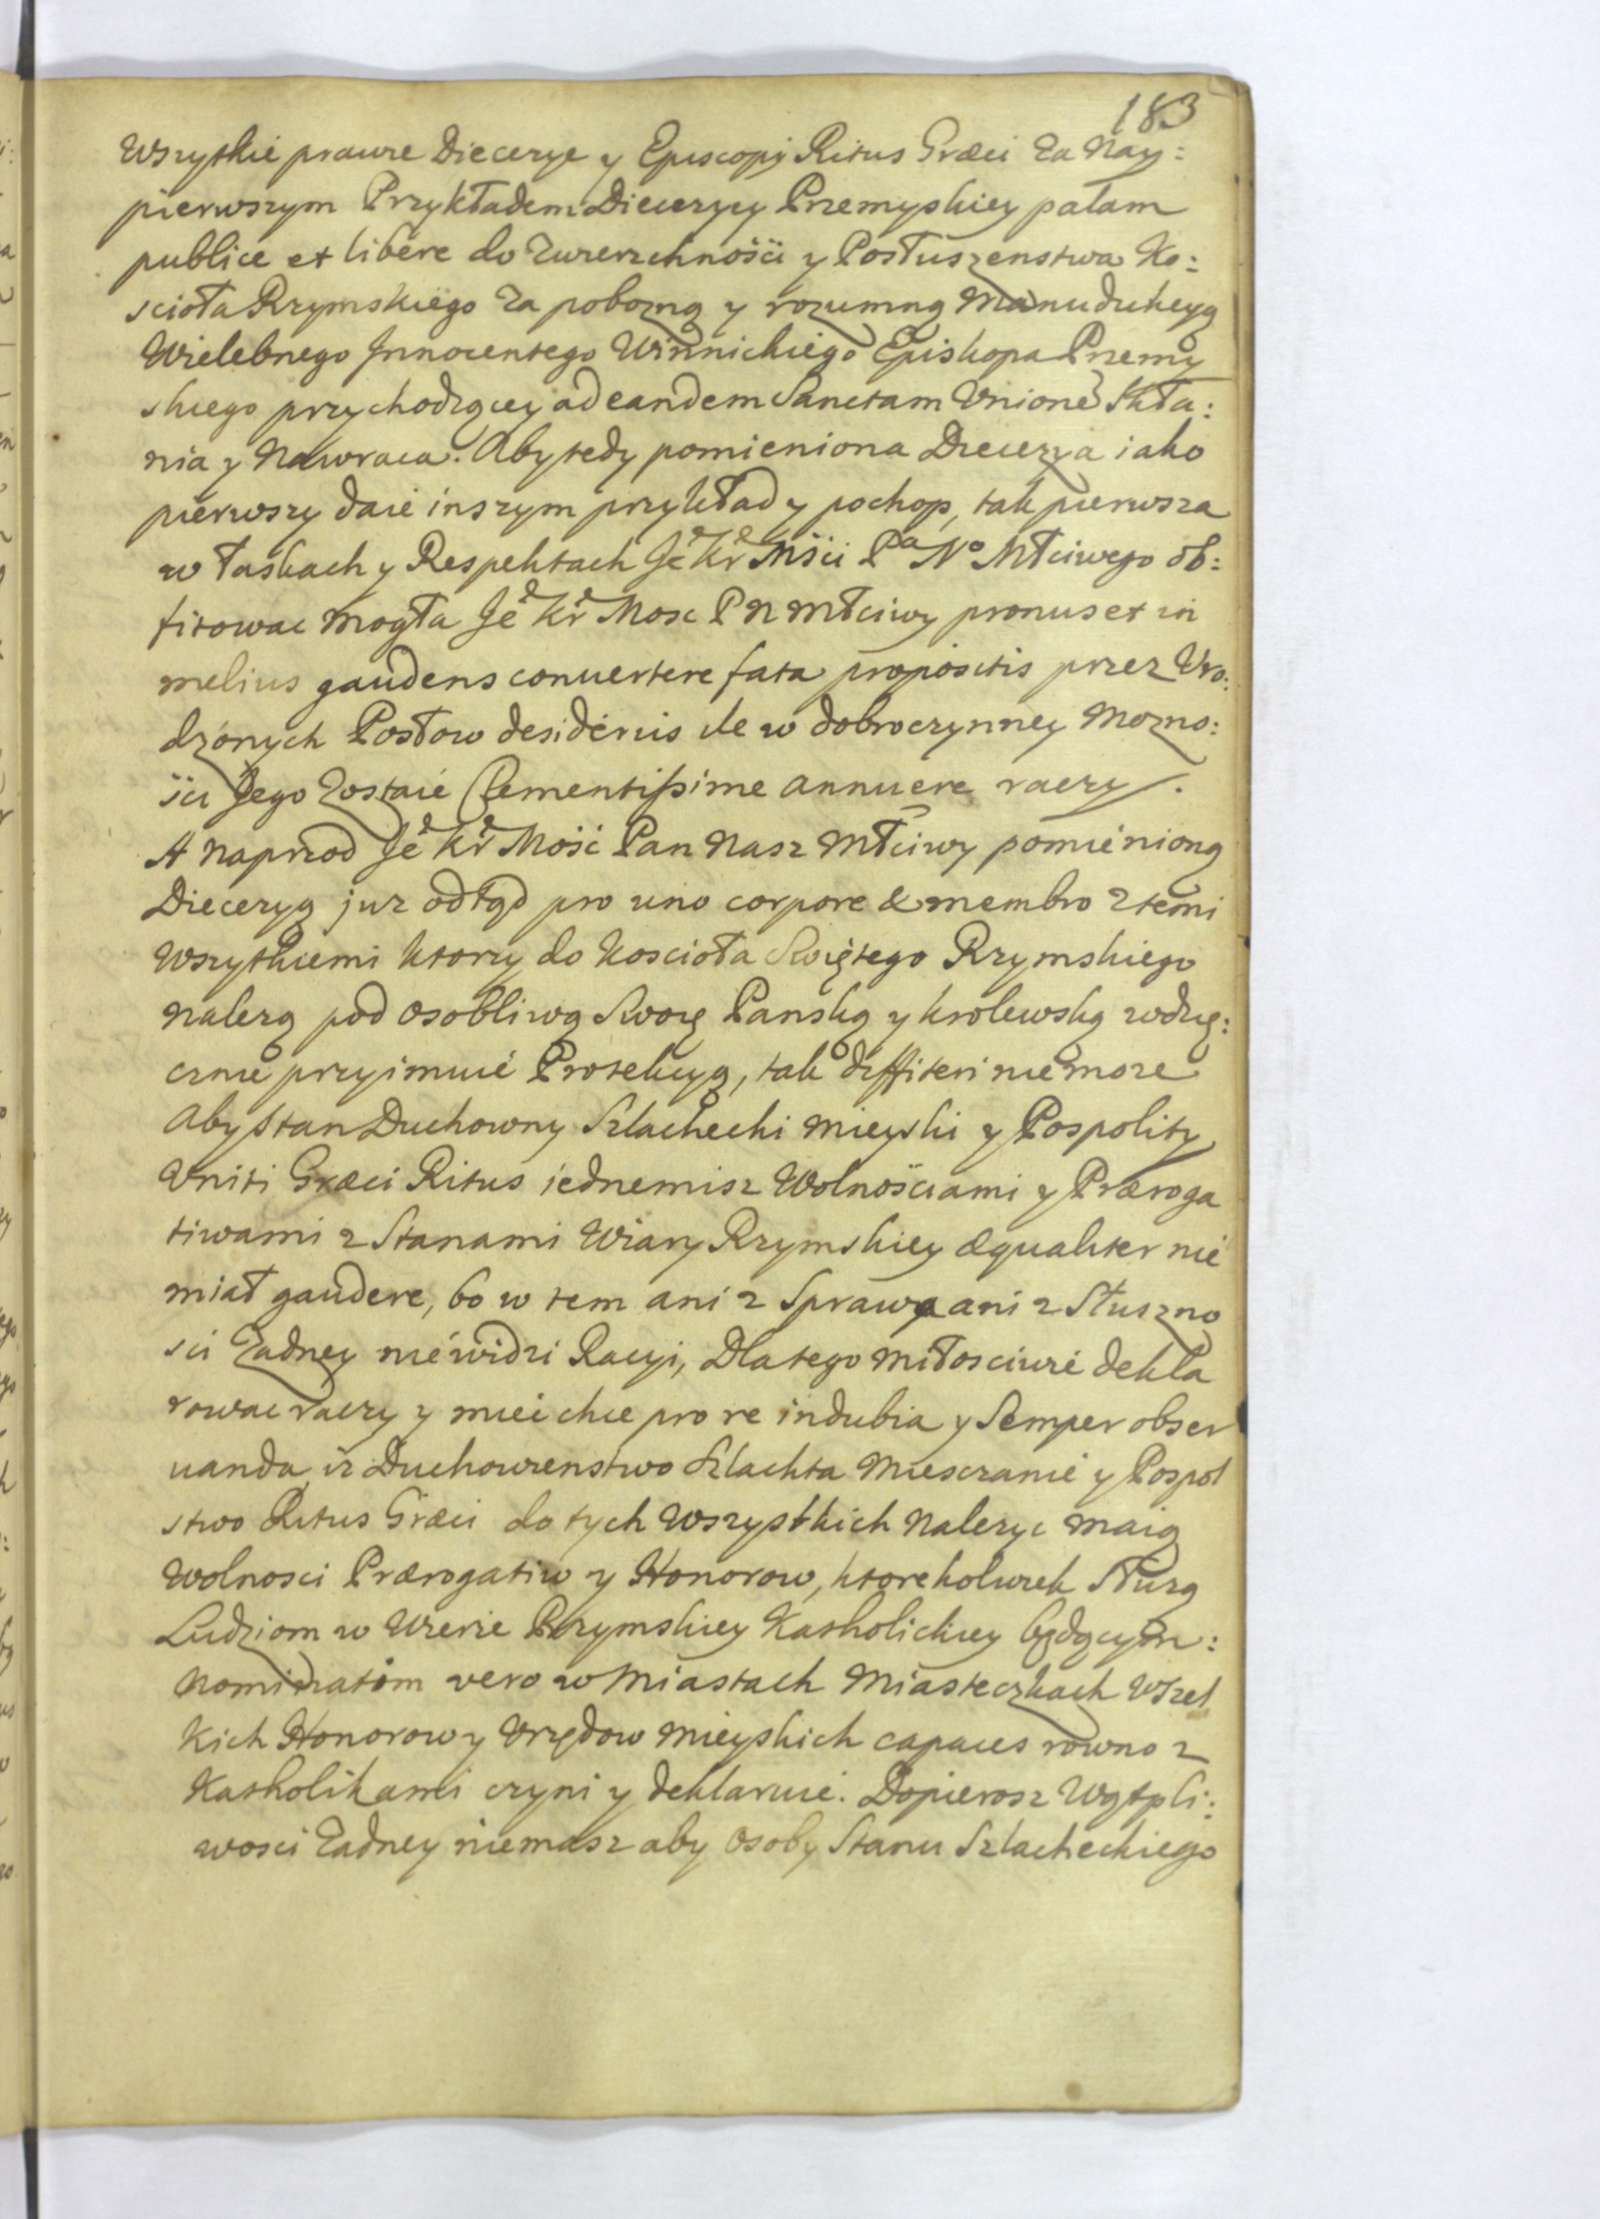 183
Wszytkie prawie Diecezye y Episcopij Ritus Græci Za Nay:
pierwszym Przykładem Diecezyey Przemyskiey palam
publice et libere do Zwierzchności y Posłuszenstwa Ko:
scioła Rzymskiego Za pobozną y rozumną Manudukcyą
Wielebnego Innocentego Winnickiego Episkopa Przemy
skiego przychodzącey ad eandem Sanctam Unione Skła:
nia y Nawraca. Aby tedy pomieniona Diecezya iako
pierwszy daie inszym przykład y pochop, tak pierwsza
w łaskach y Respektach Je° Kr° Mści Pa N° Młciwego ob:
fitowac mogła Je° Kr° Mosc P N Młciwy pronus et in
melius gaudens convertere fata propositis przez Uro:
dzonych Posłow desideriis ile w dobroczynney Mozno:
ści Jego Zostaie Clementissime annuere raczy.
A naprzod Je° Kr° Mość Pan Nasz Młciwy pomienioną
Diecezyą juz odtąd pro uno corpore & membro z temi
Wszytkiemi ktorzy do Koscioła Swiętego Rzymskiego
nalezą pod osobliwą Swoię Panską y krolewską wdzię:
cznie przyimuie Protekcyą, tak diffiteri nie moze
Aby Stan Duchowny Szlachecki mieyski y Pospolity
Uniti Græci Ritus iednemisz Wolnościami y Præroga
tiwami z Stanami Wiary Rzymskiey æqualiter nie
miał gaudere, bo w tem ani z Sprawą ani z Słuszno
sci Zadney nie widzi Racyi, Dlatego miłosciwie dekla
rowac raczy y miec chce pro re indubia y Semper obser
uanda, iz Duchowienstwo Szlachta Miesczanie y Pospol
stwo Ritus Græci do tych Wszystkich nalezyc maią
Wolnosci Prærogatiw y Honorow, ktorekolwiek Służą
Ludziom w Wierze Rzymskiey Katholickiey będącym:
nominatim vero w Miastach Miasteczkach Wszel
kich Honorow y Urzędow mieyskich capaces rowno z
Katholikami czyni y deklaruie. Dopierosz Wątpli:
wosci Zadney niemasz aby Osoby Stanu Szlacheckiego